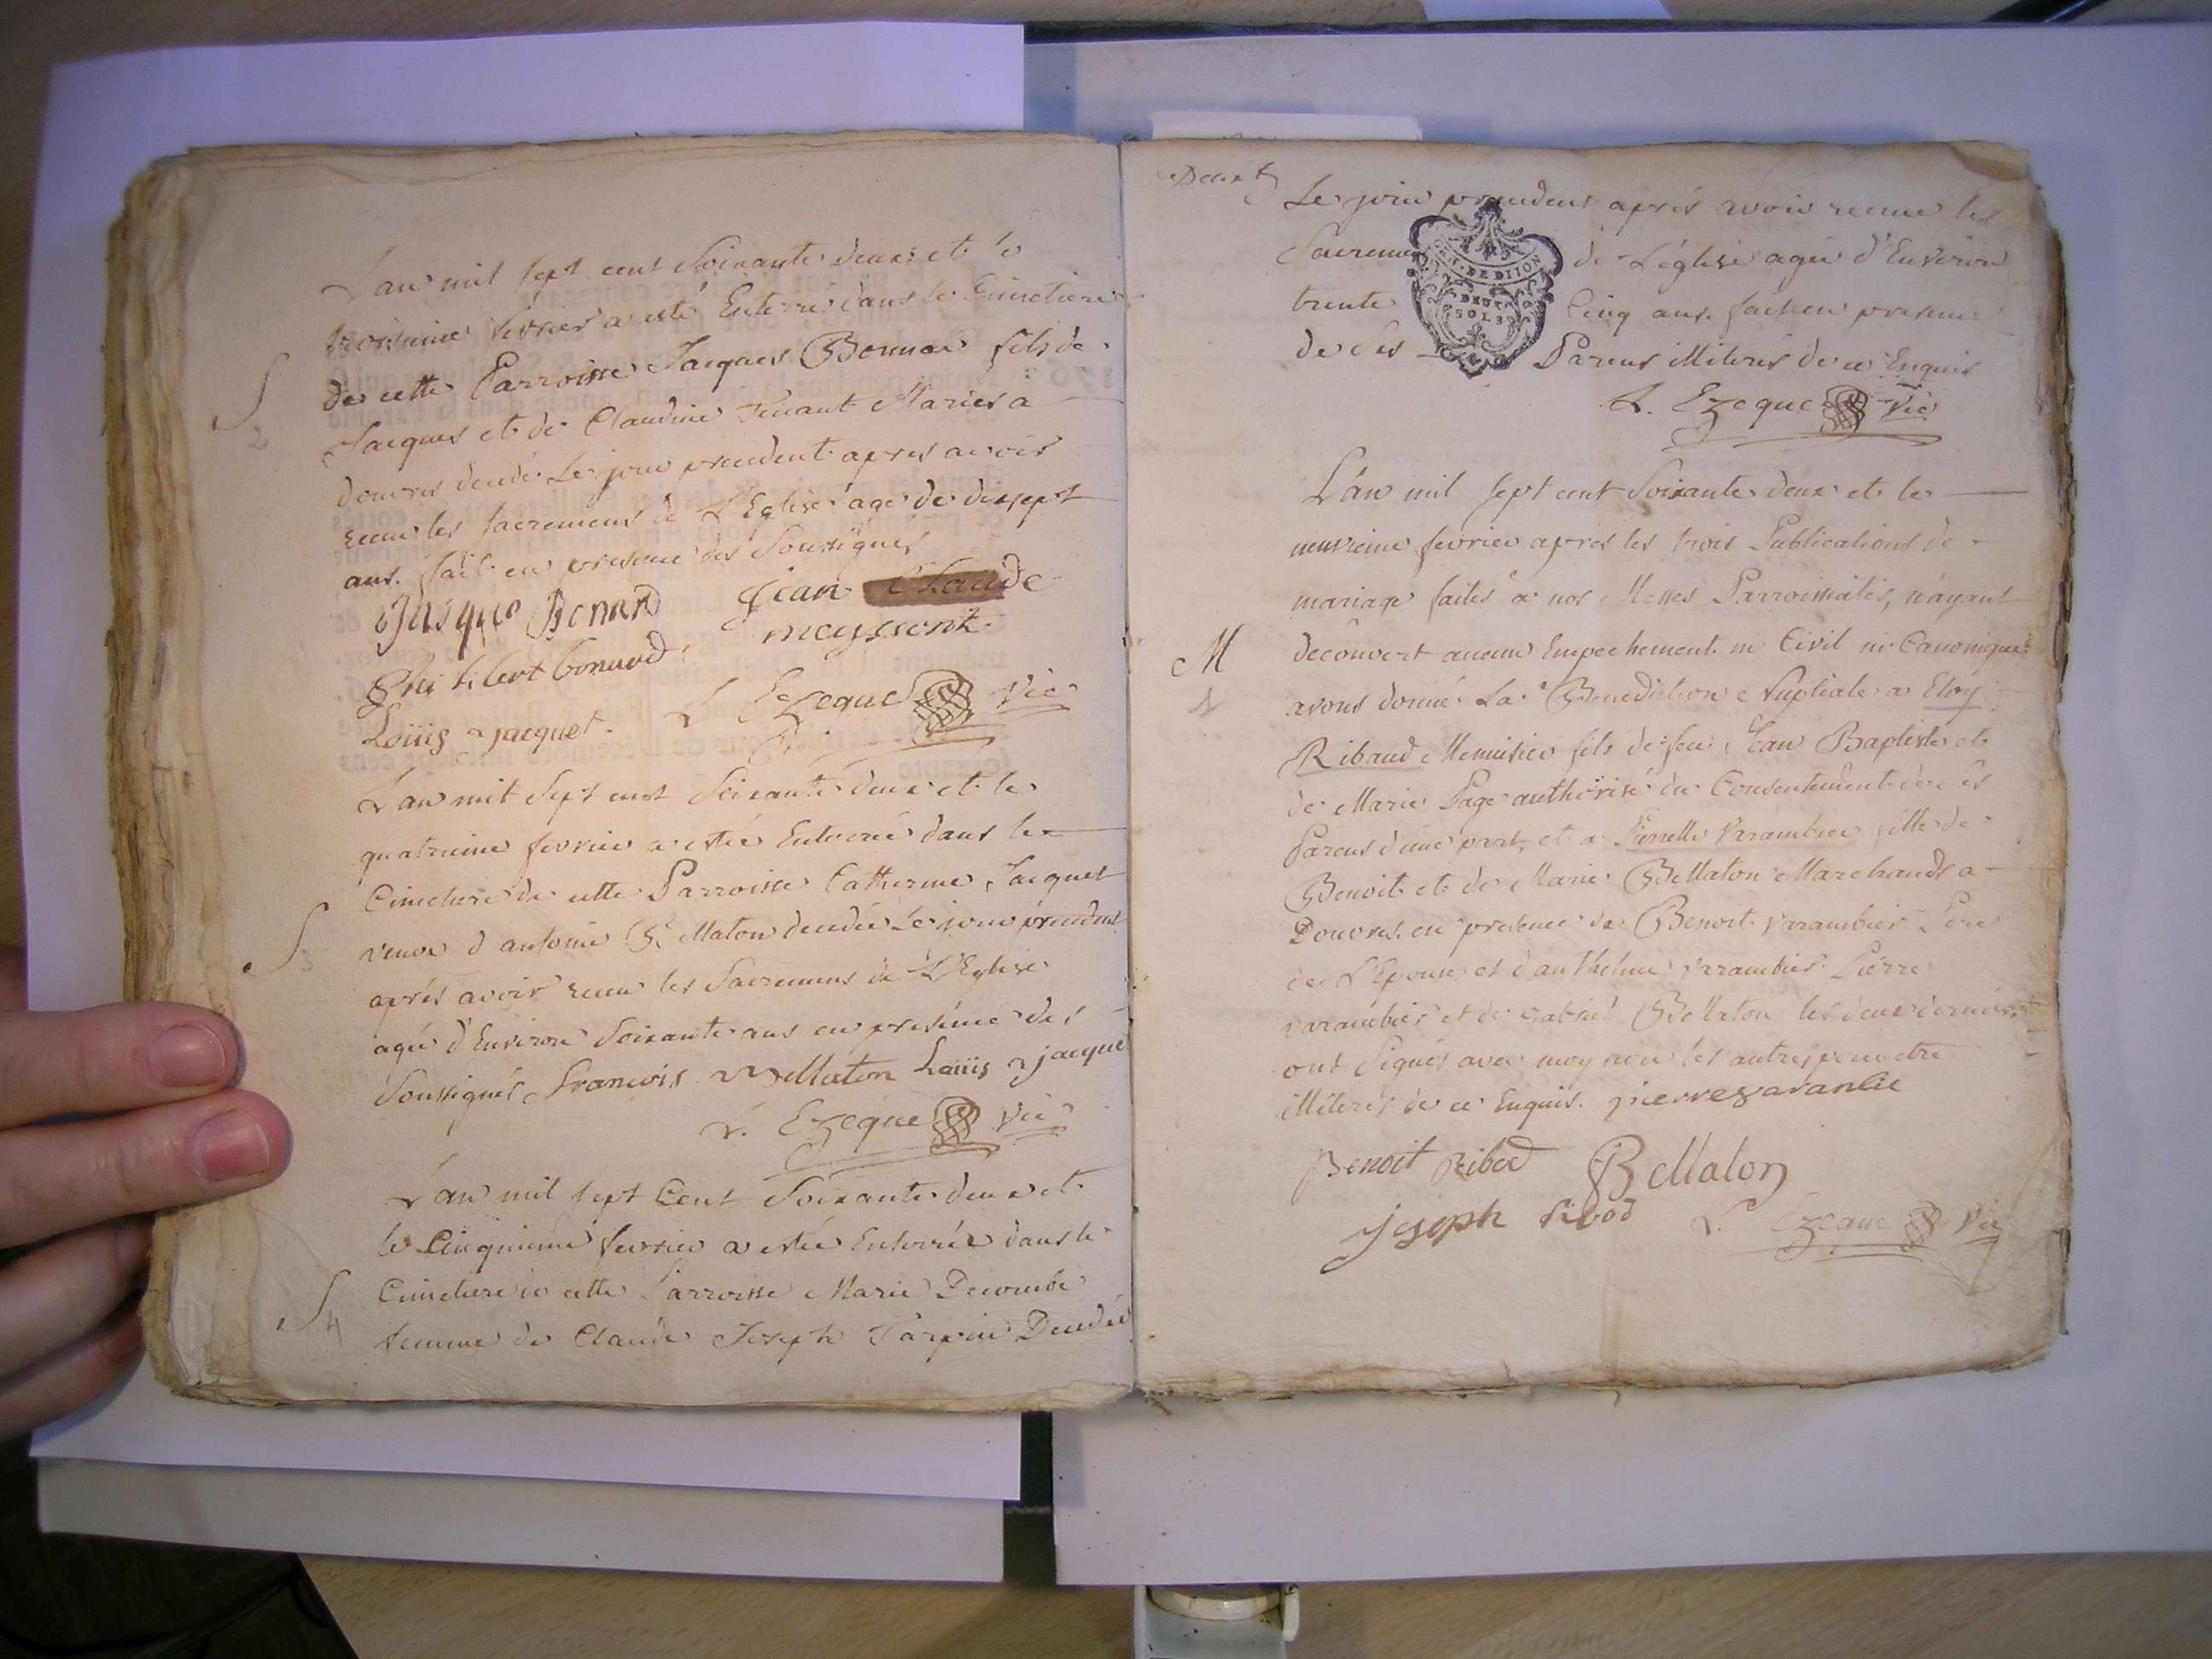 L'an mil sept cent Soixante deux et le
troisieme fevrier a esté Enterré dans le Cimetiere
de cette Parroisse Jacques Bonnard fils de
Jacques et de Claudine Mariés a
douvres decedé Le jour precedent apres avoir
receu les sacremens de L'Eglise agé de dixsept
ans. fait en presence des Soussignés
Jasque Bonard Jean Claude
meyssont
Philibert bonard
Loüis jacquet. L Ezeque Vic
S
2
L'an mil Sept cent Soixante deux et le
quatrieme fevrier a estée Enterrée dans le
Cimetiere de cette Parroisse Catherine Jacquet
veuve d'antoine Bellaton decedée Le jour precedent
aprés avoir receu les Sacremens de L'Eglise
agée d'Environ Soixante ans en presence des
Soussignés Francois Bellaton Loüis jacque
L. Ezeque Vic
S
3
L'an mil sept Cent Soixante deux et
le Cinquieme fevrier a estée Enterrée dans le
Cimetiere de cette Parroisse Marie Decombe
femme de Claude Joseph Tarpin Decedée
S
4
Le jour precedent aprés avoir receue les
Sacremens de L'église agée d'Environ
trente Cinq ans. fait en presence
de ses Parens illiterés de ce Enquis
GEN. DE DIJON
DEUX
SOLS
L. Ezeque Vic
L'an mil sept cent Soixante deux et le
neuvieme fevrier aprés les trois Publications de
mariage faites a nos Messes Parroissiales, n'ayant
decouvert aucun Empechement ni Civil ni Canonique
avons donné La Benediction Nuptiale a Eloy
Ribaud Menuisier fils de feu Jean Baptiste et
de Marie Page authorisé du Consentement de ses
Parens d'une part, et a Pierrette Varambier fille de
Benoit et de Marie Bellaton Marchands a
Douvres. en presence de Benoit varambier Pere
de L'Epouse et d'anthelme varambier Pierre
varambier et de Gabriel Bellaton les deux derniers
ont Signés avec moy non les autres pour etre
illiterés de ce Enquis. pierre varanbie
M
1
Benoit Ribod Bellaton
joseph Ribod L. Ezeque Vic